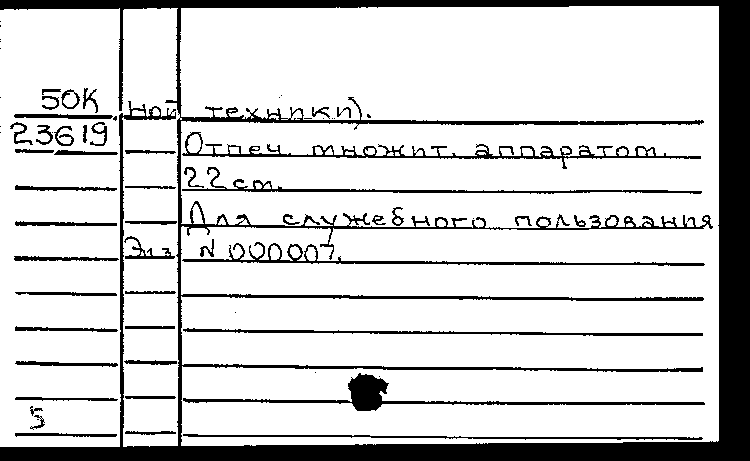 50К ной техники).
23619
Отпеч. множит. аппаратом.
22 см.
Для служебного пользования
Экз. N 000007.
5